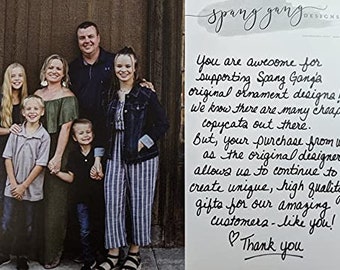 spang gang
DESIGNS
You are awesome for
supporting Spang Gang's
original ornament designs!
We know there are many cheap
copycats out there.
But, your purchase from us
as the original designer
allows us to continue to
create unique, high quality
gifts for our amazing
customers - like you!
♡ Thank you